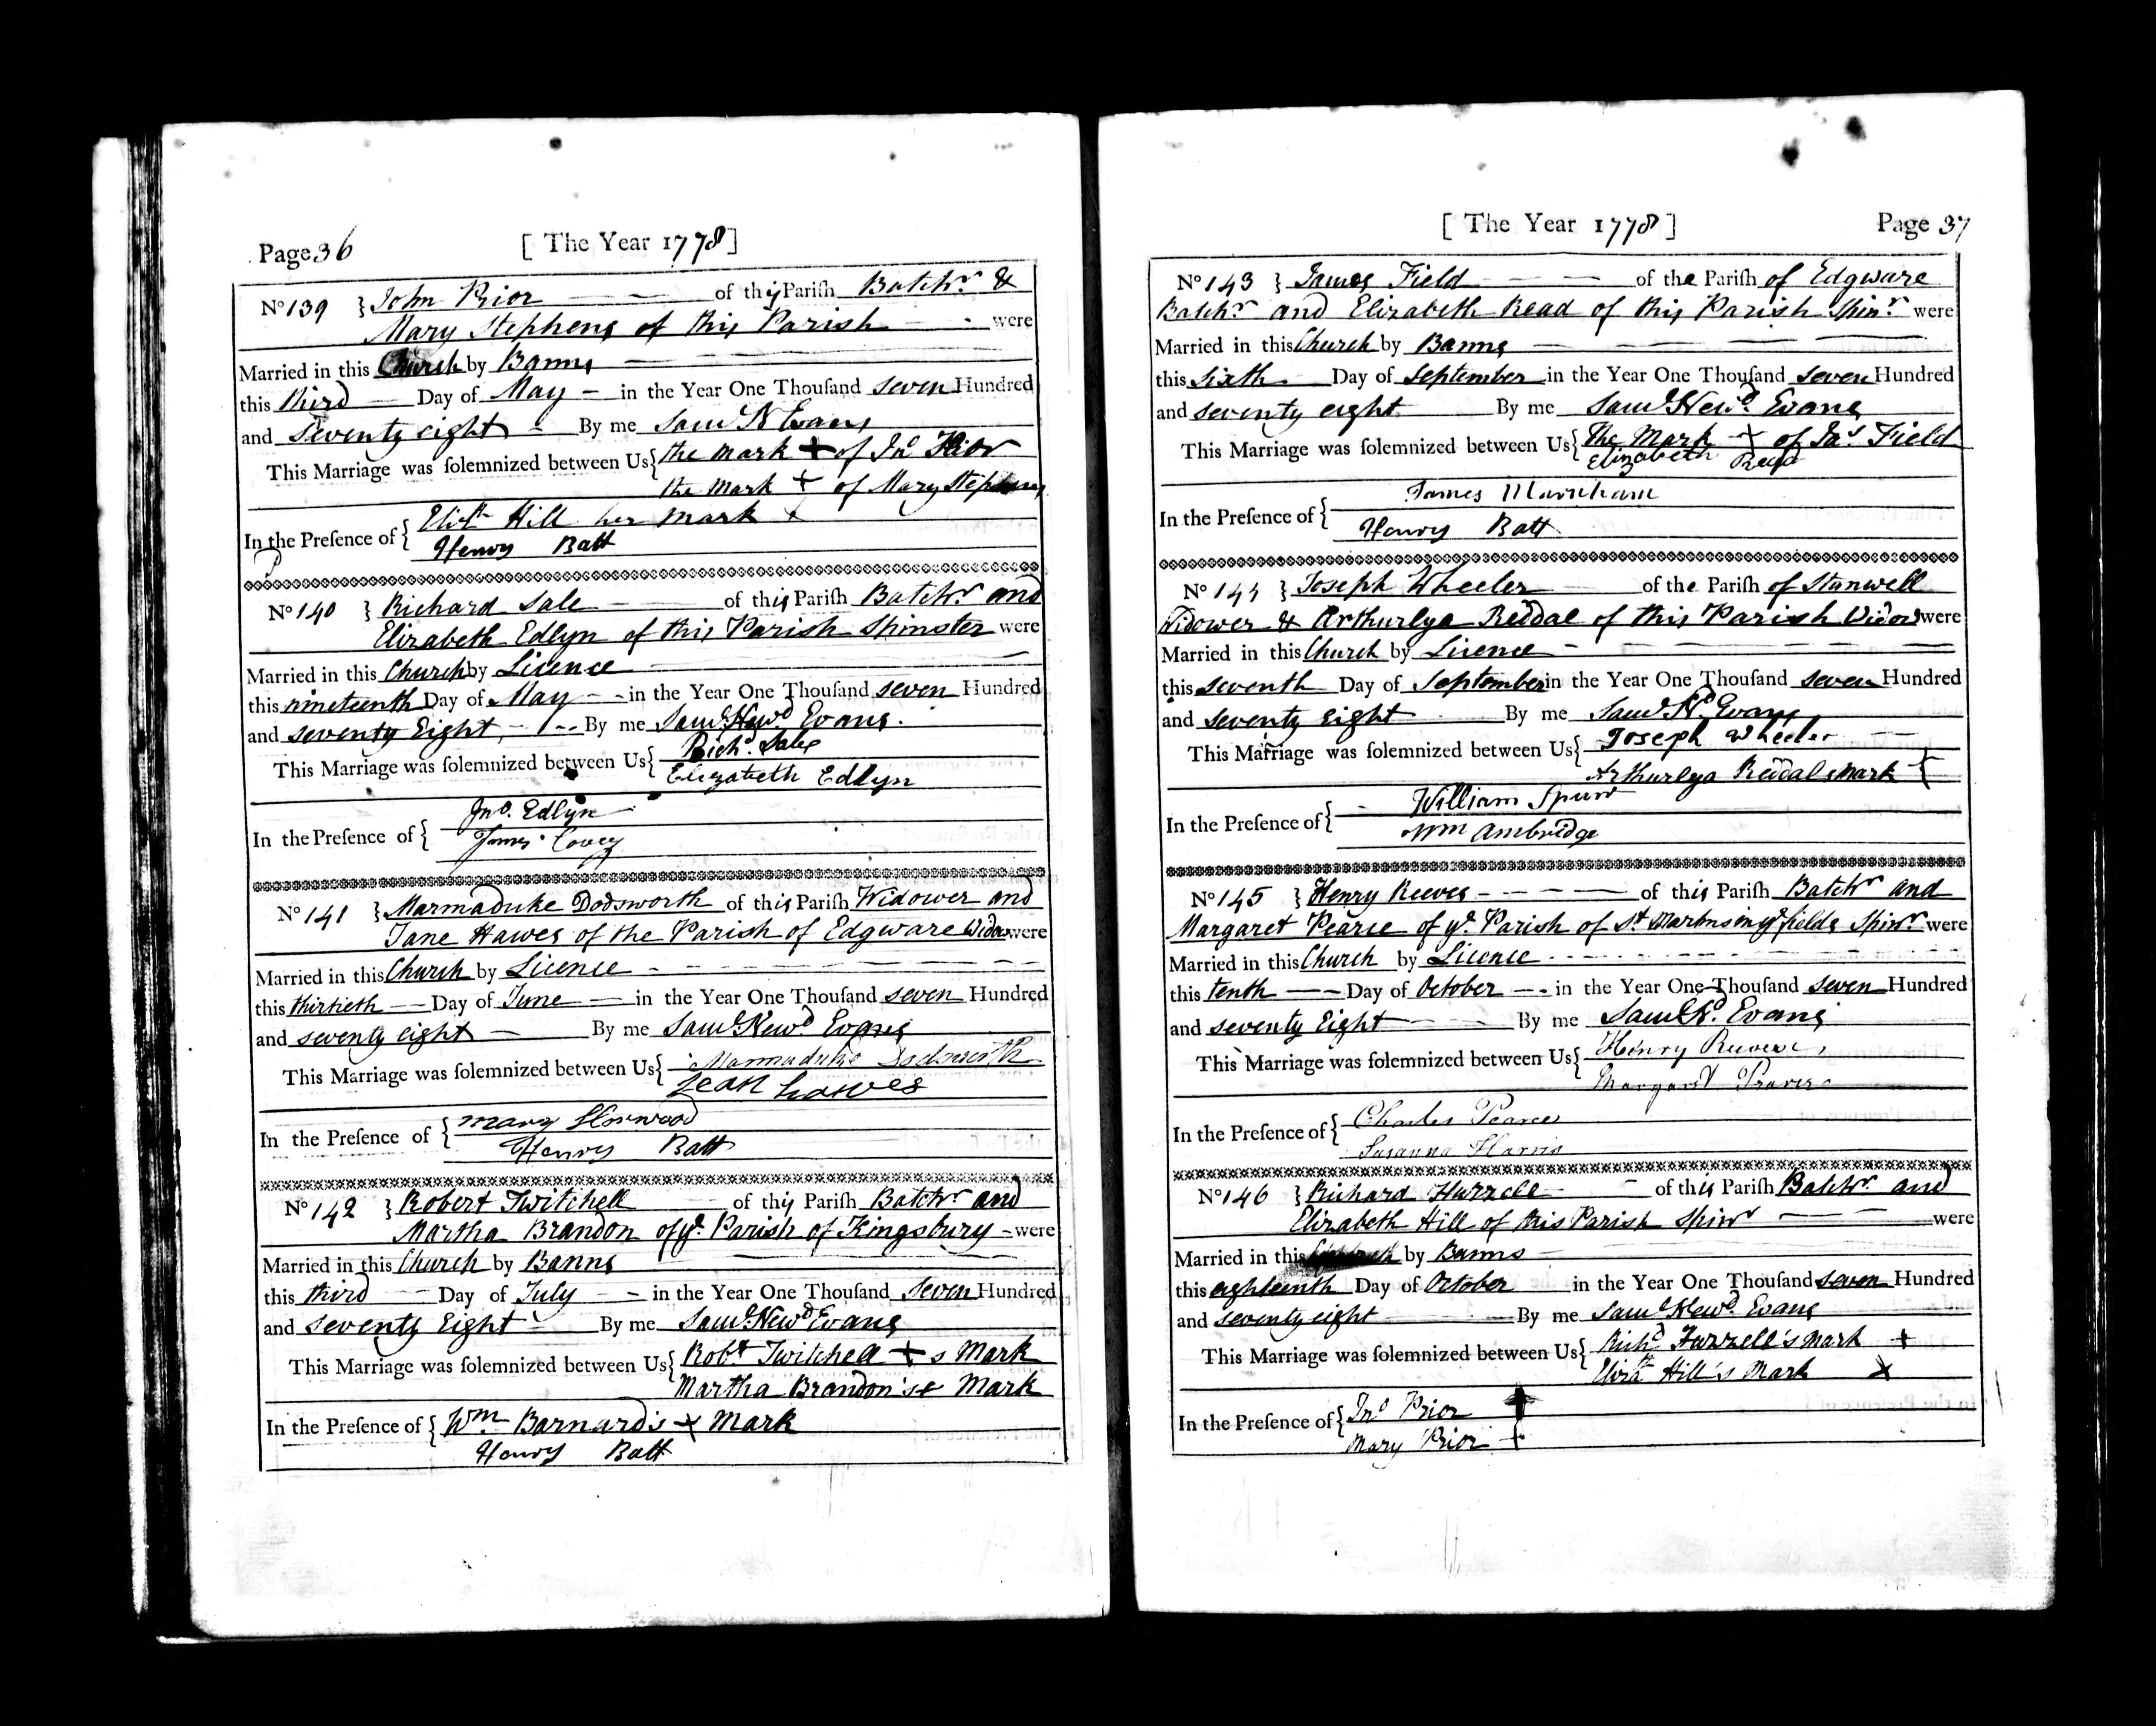 Page 36 [ The Year 1778 ]
No 139 } John Prior of this Parish Batchr. &
Mary Stephens of this Parish were
Married in this Church by Banns
this third Day of May in the Year One Thousand seven Hundred
and seventy eight By me Saml N Evans
This Marriage was solemnized between Us { the mark + of Jno Prior
the mark + of Mary Stephens
In the Presence of { Elizth Hill her mark x
Henry Batt
No 140 } Richard Sale of this Parish Batchr. and
Elizabeth Edlyn of this Parish Spinster were
Married in this Church by Licence
this nineteenth Day of May in the Year One Thousand seven Hundred
and seventy Eight By me Saml. Newd Evans.
This Marriage was solemnized between Us { Richd. Sale
Elizabeth Edlyn
In the Presence of { Jno. Edlyn
James Covey
No 141 } Marmaduke Dodsworth of this Parish Widower and
Jane Hawes of the Parish of Edgware Widow were
Married in this Church by Licence
this thirtieth Day of June in the Year One Thousand seven Hundred
and seventy eight By me Saml. Newd Evans
This Marriage was solemnized between Us { Marmaduke Dodsworth
Jean hawes
In the Presence of { Mary Horwood
Henry Batt
No 142 } Robert Twitchell of this Parish Batchr. and
Martha Brandon of ye. Parish of Kingsbury were
Married in this Church by Banns
this third Day of July in the Year One Thousand seven Hundred
and seventy Eight By me Saml. Newd Evans
This Marriage was solemnized between Us { Robt Twitchell + s Mark
Martha Brandon's + Mark
In the Presence of { Wm Barnard's + Mark
Henry Batt
[ The Year 1778 ] Page 37
No 143 } James Field of the Parish of Edgware
Batchr. and Elizabeth Read of this Parish Spinr. were
Married in this Church by Banns
this sixth Day of September in the Year One Thousand seven Hundred
and seventy eight By me Saml. Newd. Evans
This Marriage was solemnized between Us { The Mark + of Jas. Field
Elizabeth Read
In the Presence of { James Marnham
Henry Batt
No 144 } Joseph Wheeler of the Parish of Stanwell
Widower & Arthurlya Reddal of this Parish Widow were
Married in this Church by Licence
this seventh Day of September in the Year One Thousand seven Hundred
and seventy eight By me Saml. Nd. Evans
This Marriage was solemnized between Us { Joseph Wheeler
Arthurlya Reddals Mark +
In the Presence of { William Spurr
Wm Ambridge
No 145 } Henry Reeves of this Parish Batchr and
Margaret Pearce of ye. Parish of St Martinsinye fields Spinr. were
Married in this Church by Licence
this tenth Day of October in the Year One Thousand seven Hundred
and seventy Eight By me Saml. Nd. Evans
This Marriage was solemnized between Us { Henry Reeves
Margaret
In the Presence of { Charles Pearce
Susanna Harris
No 146 } Richard Hurzell of this Parish Batchr. and
Elizabeth Hill of this Parish Spinr were
Married in this Church by Banns
this eighteenth Day of October in the Year One Thousand seven Hundred
and seventy eight By me Saml. Newd. Evans
This Marriage was solemnized between Us { Richd Furzell's mark +
Elizth Hill's Mark x
In the Presence of { Jno Prior +
Mary Prior +